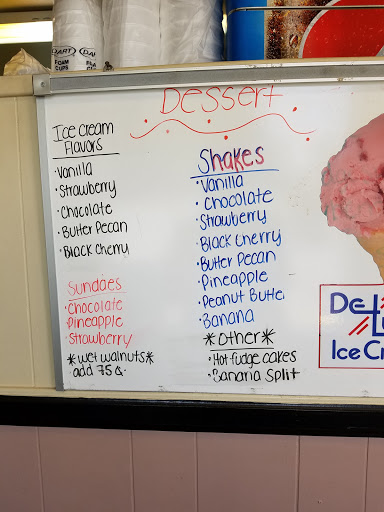 DART
FOAM
CUPS
Dessert
Ice Cream
Flavors
·Vanilla
·Strawberry
·Chocolate
·Butter Pecan
·Black Cherry
Sundaes
·Chocolate
·Pineapple
·Strawberry
*wet walnuts*
add 75¢.
Shakes
·Vanilla
·Chocolate
·Strawberry
·Black Cherry
·Butter Pecan
·Pineapple
·Peanut Butter
·Banana
*Other*
·Hot fudge cakes
·Banana Split
DeL
Lu
Ice Cr